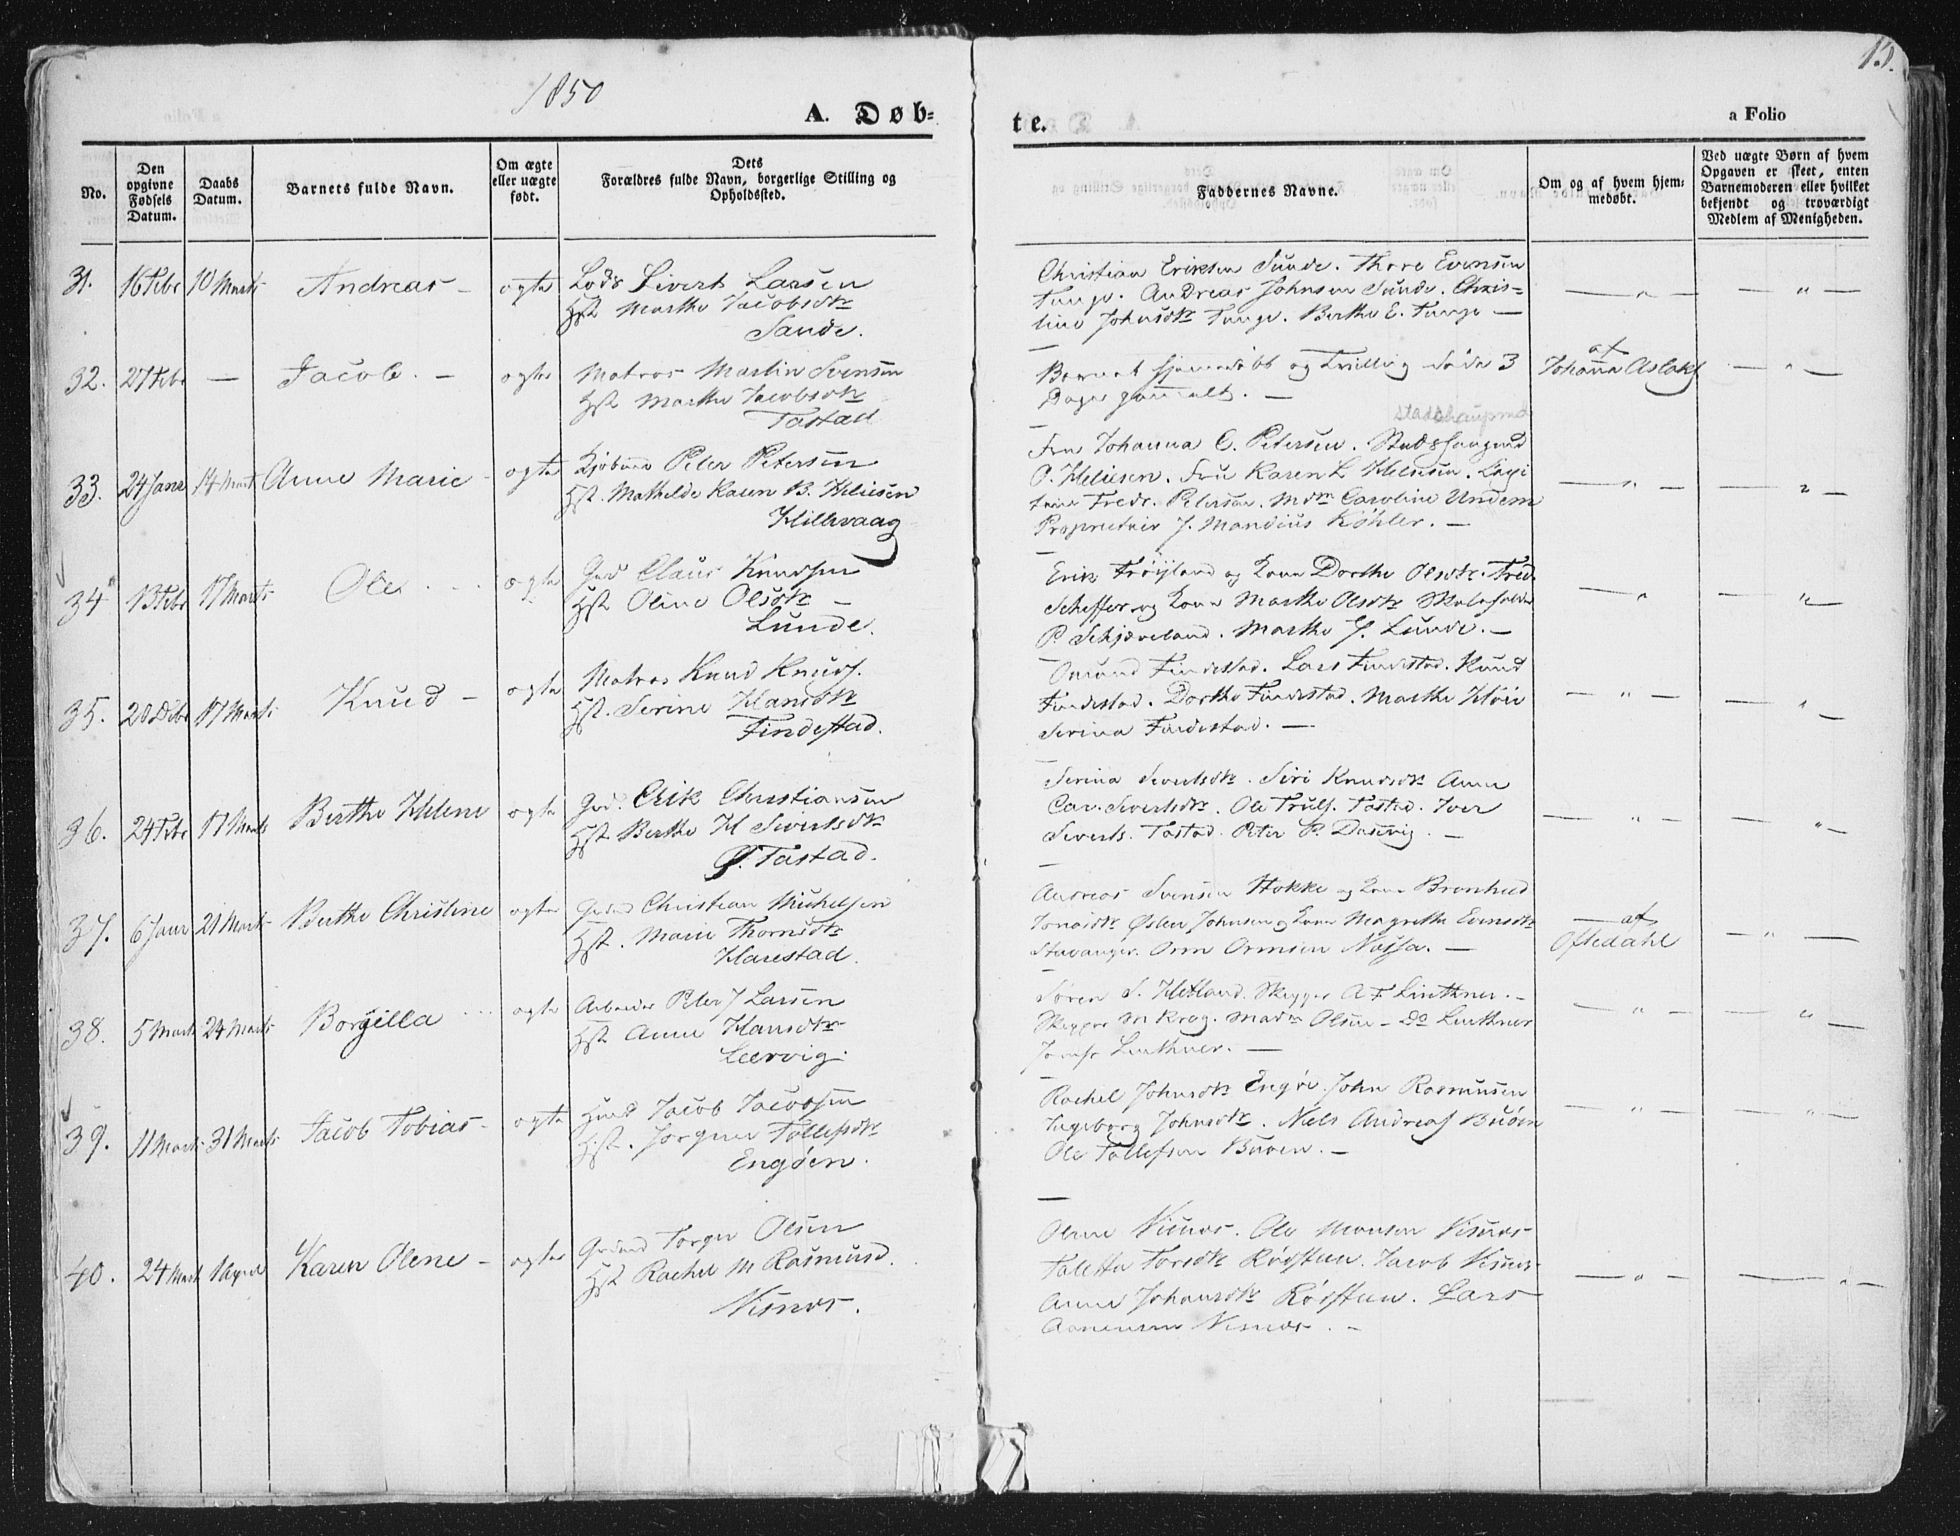 1850
15.
A. Døb-
te.
a Folio
No.
Den opgivne Fødsels Datum.
Daabs Datum.
Barnets fulde Navn.
Om ægte eller uægte født.
Dets Forældres fulde Navn, borgerlige Stilling og Opholdssted.
Faddernes Navne.
Om og af hvem hjemmedøbt.
Ved uægte Børn af hvem Opgaven er skeet, enten Barnemoderen eller hvilket bekjendt og troværdigt Medlem af Menigheden.
31. 16 Febr 10 Marts Andreas - ægte
Lods Sivert Larsen
Hst Marthe Jacobsdtr
Sande.
Christian Eriksen Sunde. Thore Evensen
Tunge. Andreas Johnsen Sunde. Chris-
tine Johnsdtr Tunge. Berthe E. Tunge —
— " —
— " —
32. 27 Febr — Jacob. - ægte
Matros Martin Svensen
Hst Marthe Jacobsdtr
Tastad
Barnet hjemmedøbt og Tvilling døde 3
Dage gammelt. —
af
Johanna Aslaks
— " —
33. 24 Janr 14 Mart Anne Marie - ægte
Kjøbmd Peter Petersen
Hst. Mathilde Karen B. Helliesen
Hillevaag
stadshaupmd
Fru Johanna C. Petersen. Stadshaupmd
P. Helliesen. Fru Karen L Helliesen.
Fredr. Petersen. Mdm Caroline Undem
Proprietair J. Mandius Køhler. —
— " —
— " —
34 13 Febr 17 Marts Ole ægte
Grd Claus Knudsen
Hst Oline Olsdtr —
Lunde.
Erik Frøyland og Kone Dorthe Olsdtr. Fred
Scheffer og Kone Marthe Olsdtr Skoleholder
P. Schjæveland. Marthe J. Lunde. —
— " —
— " —
35. 20 Debr 17 Marts Knud - ægte
Matros Knud Knuds.
Hst. Serine Hansdtr
Findestad.
Omund Findestad. Lars Findestad. Knud
Findestad. Dorthe Findestad. Marthe Høie
Serina Findestad. —
— " —
— " —
36. 24 Febr 17 Marts Berthe Helene ægte
Grd. Erik Christiansen
Hst Berthe H Sivertsdtr
Ø. Tastad.
Serina Sivertsdtr. Siri Knudsdtr Anne
Car. Sivertsdtr. Ole Truls. Tastad. Iver
Siverts. Tastad. Peter P. Dusevig. —
— " —
— " —
37. 6 Janr 21 Marts Berthe Christine ægte
Grdmd Christian Michelsen
Hst. Marie Thomsdtr
Harestad.
Andreas Svensen Hokke og Kone Bronhild
Jonasdtr Østen Johnsen og Kone Magrethe Evensdtr
Stavanger. Orm Ormsen Nøisa. —
— af
Oftedahl
— " —
38. 5 Marts 24 Marts Borgilla ægte
Arbeider Peter J Larsen
Hst Anne Hansdtr
Leervig.
Søren S. Hetland. Skipper A F Linthner. —
Skipper M Krog. Madm Olsen — Do Linthner
Jomfr Linthner. —
— " —
— " —
39. 11 Marts 31 Marts Jacob Tobias - ægte
Husmd Jacob Jacobsen
Hst. Jorgine Tollefsdtr
Engøen.
Rachel Johnsdtr Engøe. John Rasmusen
Ingeborg Johnsdtr. Niels Andreas Buøen
Ole Tollefsen Buøen. —
— " —
— " —
40. 24 Marts 1 April Karen Olene - ægte
Grdmd Torger Olsen
Hst Rachel M Rasmusd.
Visnes.
Olene Visnes. Ole Monsen Visnes
Taletta Torsdtr Rødstun. Jacob Visnes
Anne Johansdtr Rødstun. Lars
Asmunsen Visnes. —
— " —
— " —